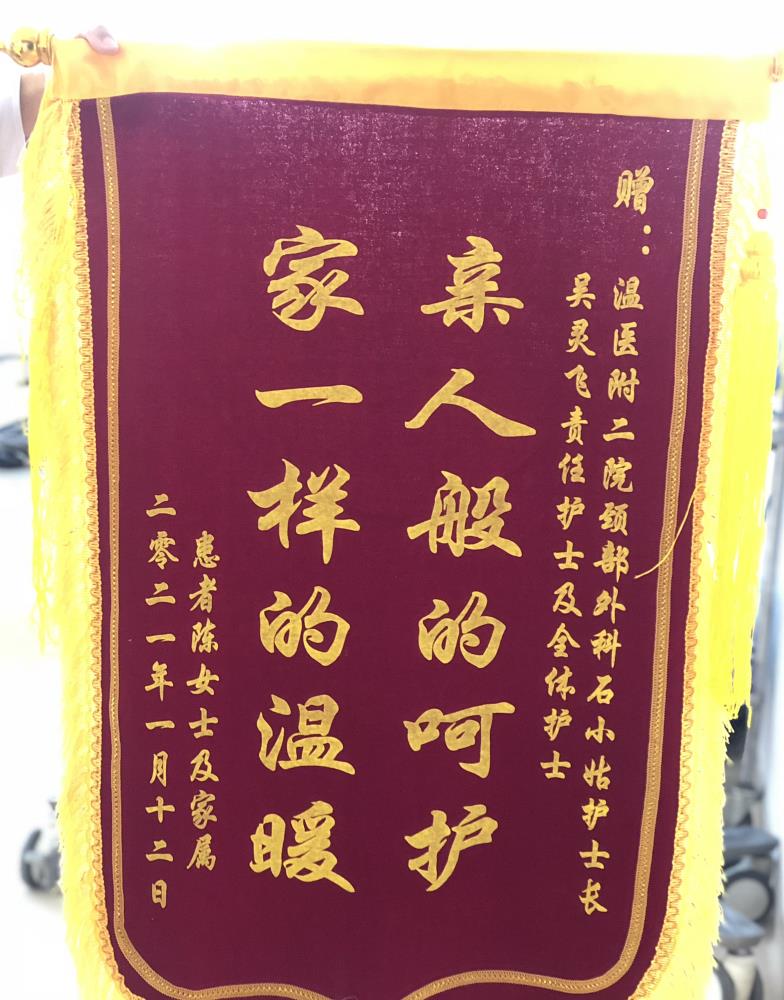 赠：
温医附二院颈部外科石小姑护士长
吴灵飞责任护士及全体护士
亲人般的呵护
家一样的温暖
患者陈女士及家属
二零二一年一月十二日